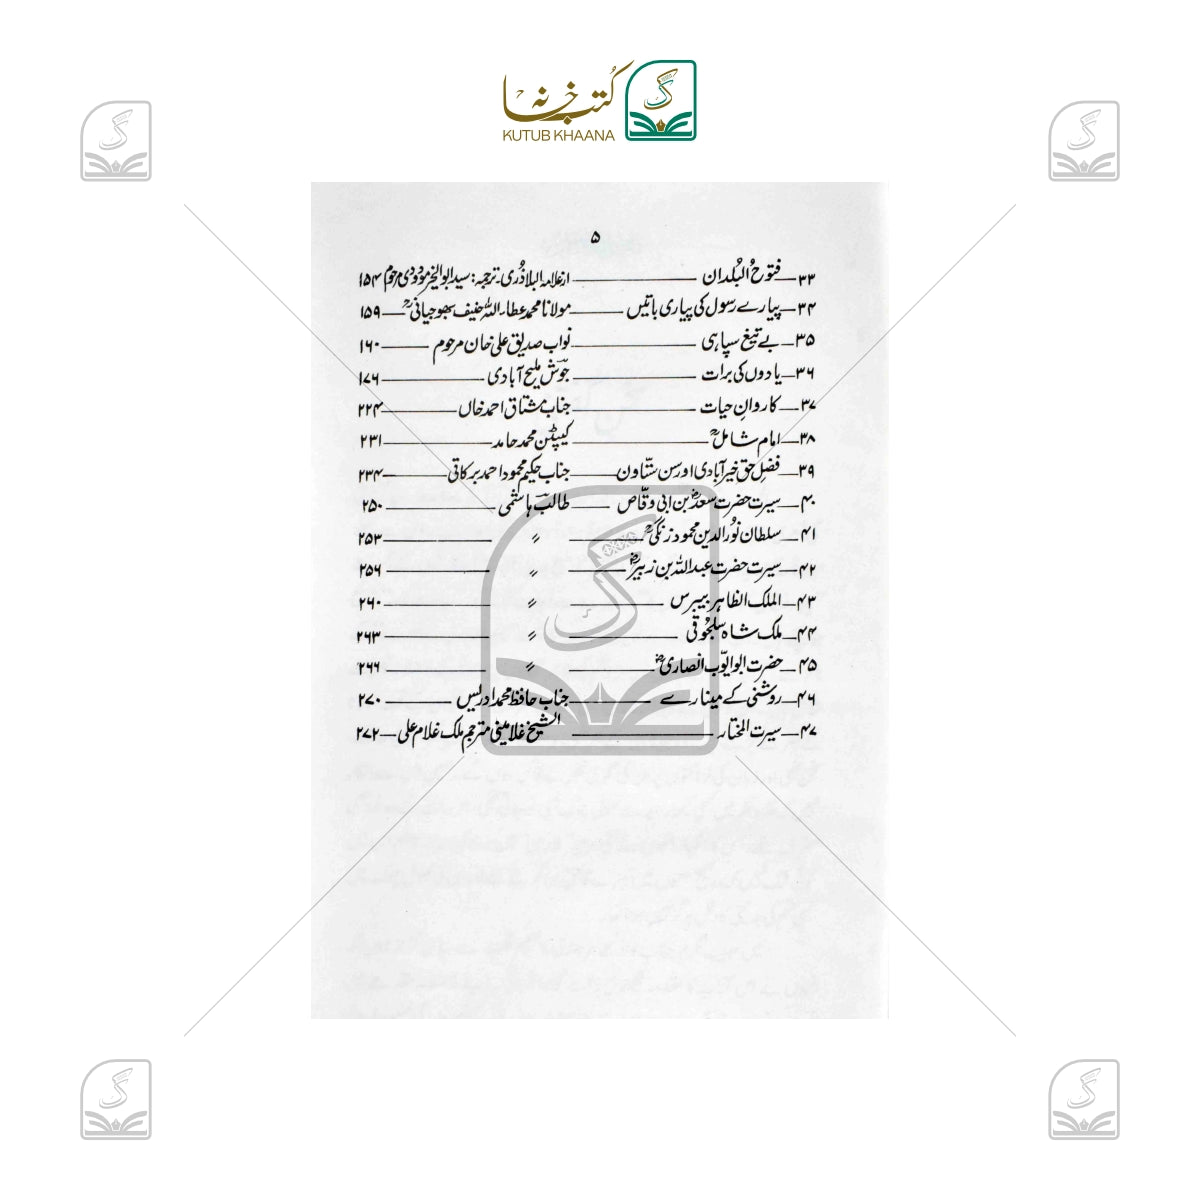 کتب خانہ
KUTUB KHAANA
۵
۳۳— فتوحُ البُلدان — از علامہ البلاذُری۔ ترجمہ: سید ابوالخیر مودودی مرحوم ۱۵۴
۳۴— پیارے رسول کی پیاری باتیں — مولانا محمد عطاء اللہ حنیف بھوجیانیؒ — ۱۵۹
۳۵— بے تیغ سپاہی — نواب صدیق علی خان مرحوم — ۱۶۰
۳۶— یادوں کی برات — جوش ملیح آبادی — ۱۷۶
۳۷— کاروانِ حیات — جناب مشتاق احمد خاں — ۲۲۴
۳۸— امام شاملؒ — کیپٹن محمد حامد — ۲۳۱
۳۹— فضلِ حق خیر آبادی اور سن ستّاون — جناب حکیم محمود احمد برکاتی — ۲۳۴
۴۰— سیرت حضرت سعدؓ بن ابی وقّاص — طالب ہاشمی — ۲۵۰
۴۱— سلطان نُور الدین محمود زنگیؒ — 〃 — ۲۵۳
۴۲— سیرت حضرت عبداللہ بن زبیرؓ — 〃 — ۲۵۶
۴۳— الملک الظاہر بیبرس — 〃 — ۲۶۰
۴۴— ملک شاہ سلجُوقی — 〃 — ۲۶۳
۴۵— حضرت ابو ایوّب انصاریؓ — 〃 — ۲۶۶
۴۶— روشنی کے مینارے — جناب حافظ محمد ادریس — ۲۷۰
۴۷— سیرت المختار — الشیخ غلامینی مترجم ملک غلام علی — ۲۷۲